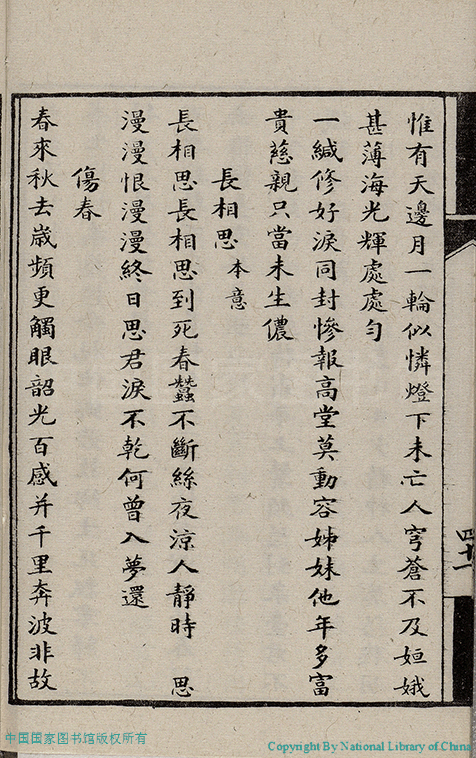 惟有天邊月一輪似憐燈下未亡人穹蒼不及姮娥
甚薄海光輝處處勻
一緘修好淚同封慘報高堂莫動容姊妹他年多富
貴慈親只當未生儂
長相思 本意
長相思長相思到死春蠶不斷絲夜涼人靜時 思
漫漫恨漫漫終日思君淚不乾何曾入夢還
傷春
春來秋去歲頻更觸眼韶光百感并千里奔波非故
中国国家图书馆版权所有
Copyright By National Library of China